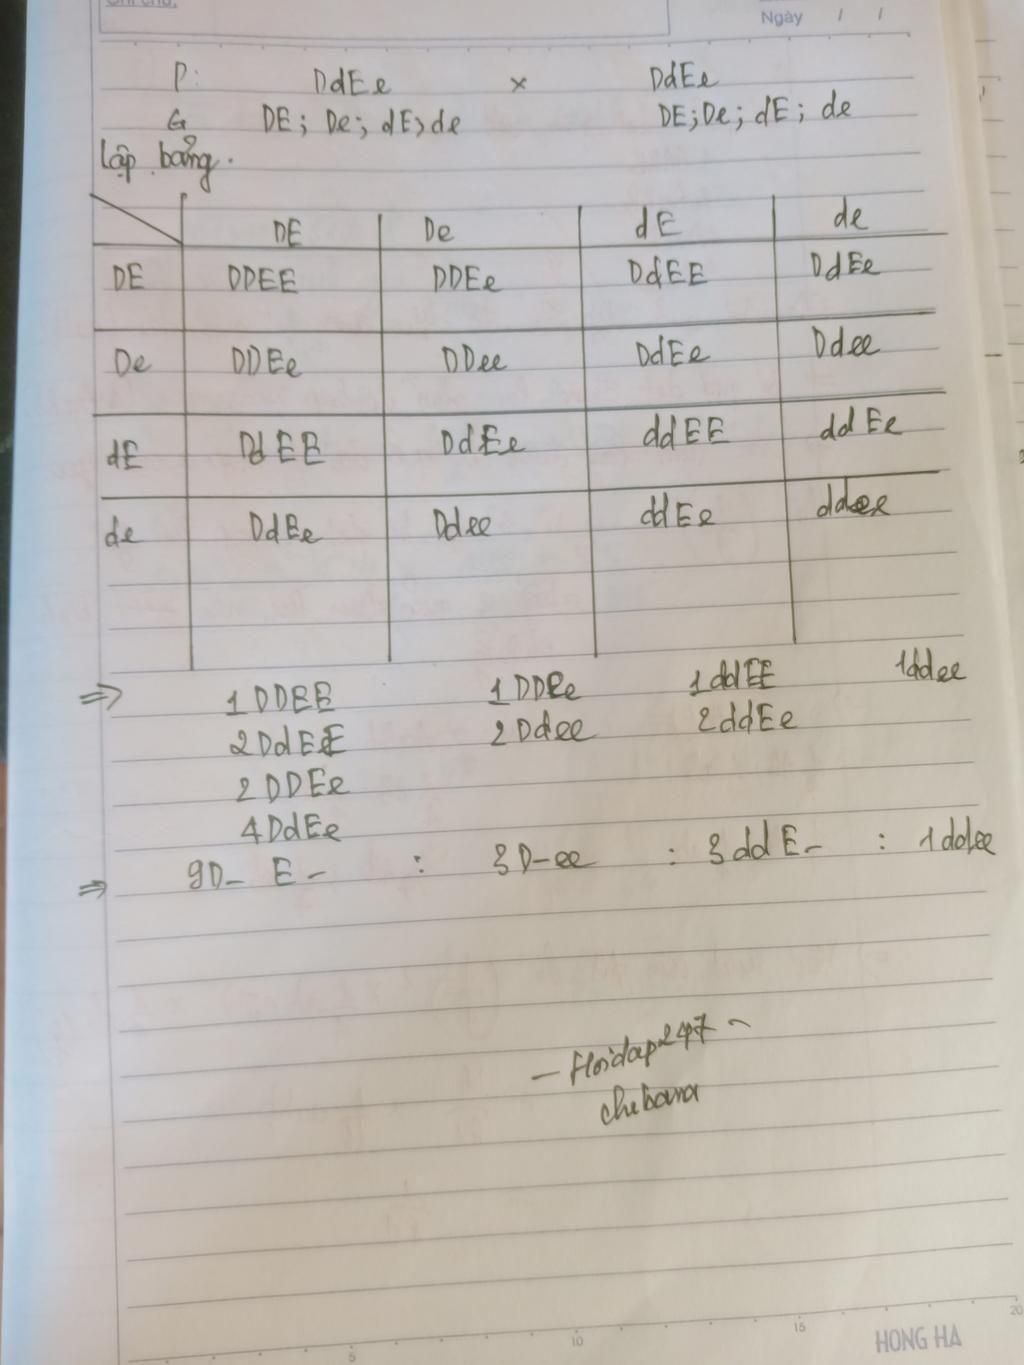 Ghi chú:
Ngày / /
P: DdEe × DdEe
G DE; De; dE; de DE; De; dE; de
Lập bảng.
DE De dE de
DE DDEE DDEe DdEE DdEe
De DDEe DDee DdEe Ddee
dE DdEE DdEe ddEE ddEe
de DdEe Ddee ddEe ddee
=> 1DDEE 1DDee 1ddEE 1ddee
2DdEE 2Ddee 2ddEe
2DDEe
4DdEe
=> 9D- E- : 3D-ee : 3ddE- : 1ddee
- Hoidap247 -
chebara
5 10 15 20
HONG HA